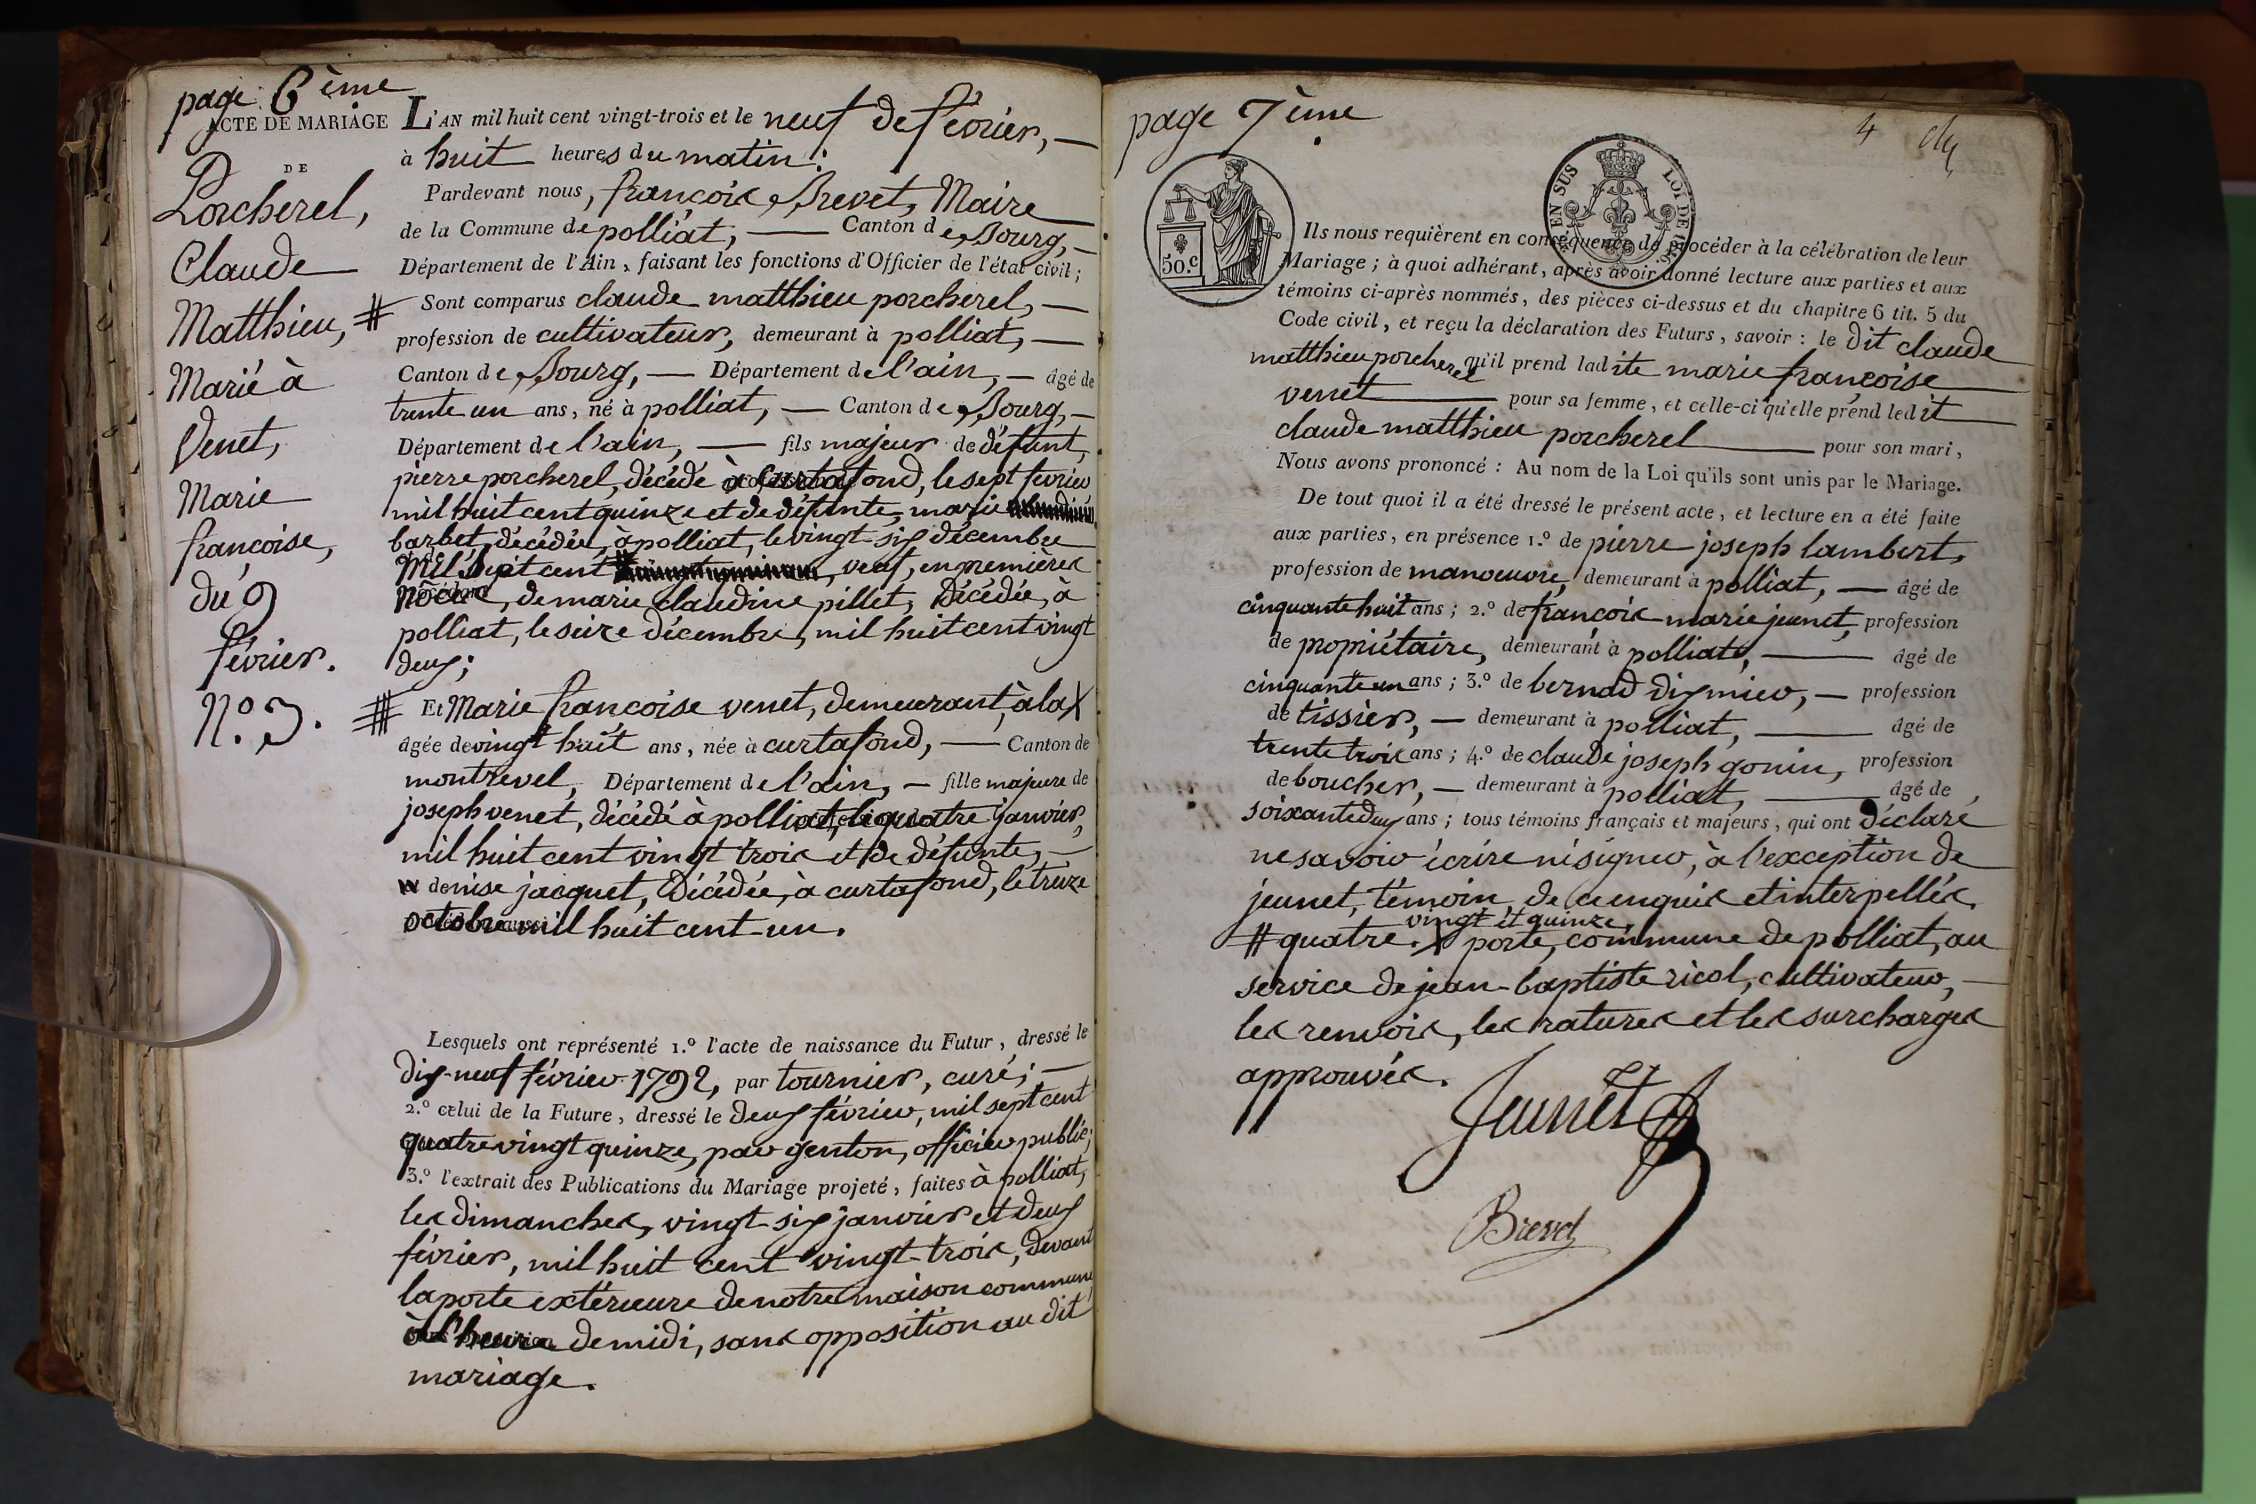 page 6ème
ACTE DE MARIAGE
DE
Porcherel,
Claude
Matthieu,
Marié à
Venet,
Marie
françoise,
du 9
février.
N.º 3.
L'AN mil huit cent vingt-trois et le neuf de février, —
à huit heures du matin :
Pardevant nous, françois Brevet, Maire
de la Commune de polliat, — Canton de Bourg, —
Département de l'Ain, faisant les fonctions d'Officier de l'état civil ;
# Sont comparus claude matthieu porcherel, —
profession de cultivateur, demeurant à polliat, —
Canton de Bourg, — Département de l'ain, — âgé de
trente un ans, né à polliat, — Canton de Bourg, —
Département de l'ain, — fils majeur de défunt,
pierre porcherel, décédé à Curtafond, le sept février
mil huit cent quinze et de défunte, marie
barbet, décédée, à polliat, le vingt six décembre
mil sept cent # , veuf, en premières
noces, de marie claudine pillet, décédée, à
polliat, le seize décembre, mil huit cent vingt
deux ;
# Et Marie françoise venet, demeurant, à la X
âgée de vingt huit ans, née à curtafond, — Canton de
montrevel, Département de l'ain, — fille majeure de
joseph venet, décédé à polliat, le quatre janvier,
mil huit cent vingt trois et de défunte, —
denise jacquet, décédée, à curtafond, le treize
octobre mil huit cent-un.
Lesquels ont représenté 1.º l'acte de naissance du Futur, dressé le
dix-neuf février 1792, par tournier, curé ; —
2.º celui de la Future, dressé le deux février, mil sept cent
quatre vingt quinze, par genton, officier public ;
3.º l'extrait des Publications du Mariage projeté, faites à polliat,
les dimanches, vingt-six janvier et deux
février, mil huit cent vingt-trois, devant
la porte extérieure de notre maison commune,
à l'heure de midi, sans opposition au dit
mariage.
page 7ème
4
EN SUS
LOI DE
50.c
Ils nous requièrent en conséquence de procéder à la célébration de leur
Mariage ; à quoi adhérant, après avoir donné lecture aux parties et aux
témoins ci-après nommés, des pièces ci-dessus et du chapitre 6 tit. 5 du
Code civil, et reçu la déclaration des Futurs, savoir : le dit claude
matthieu porcherel qu'il prend ladite marie françoise
venet — pour sa femme, et celle-ci qu'elle prend ledit
claude matthieu porcherel — pour son mari,
Nous avons prononcé : Au nom de la Loi qu'ils sont unis par le Mariage.
De tout quoi il a été dressé le présent acte, et lecture en a été faite
aux parties, en présence 1.º de pierre joseph lambert,
profession de manoeuvre, demeurant à polliat, — âgé de
cinquante huit ans ; 2.º de françois marie jeunet, profession
de propriétaire, demeurant à polliat, — âgé de
cinquante un ans ; 3.º de bernad dismier, — profession
de tissier, — demeurant à polliat, — âgé de
trente trois ans ; 4.º de claude joseph gonin, profession
de boucher, — demeurant à polliat, — âgé de
soixante deux ans ; tous témoins français et majeurs, qui ont déclaré
ne savoir écrire ni signer, à l'exception de
jeunet, témoin, de ce enquis et interpellés.
vingt et quinze,
# quatre. X porte, commune de polliat, au
service de jean-baptiste ricol, cultivateur, —
les renvois, les ratures et les surcharges
approuvés.
Jeunet
Brevet